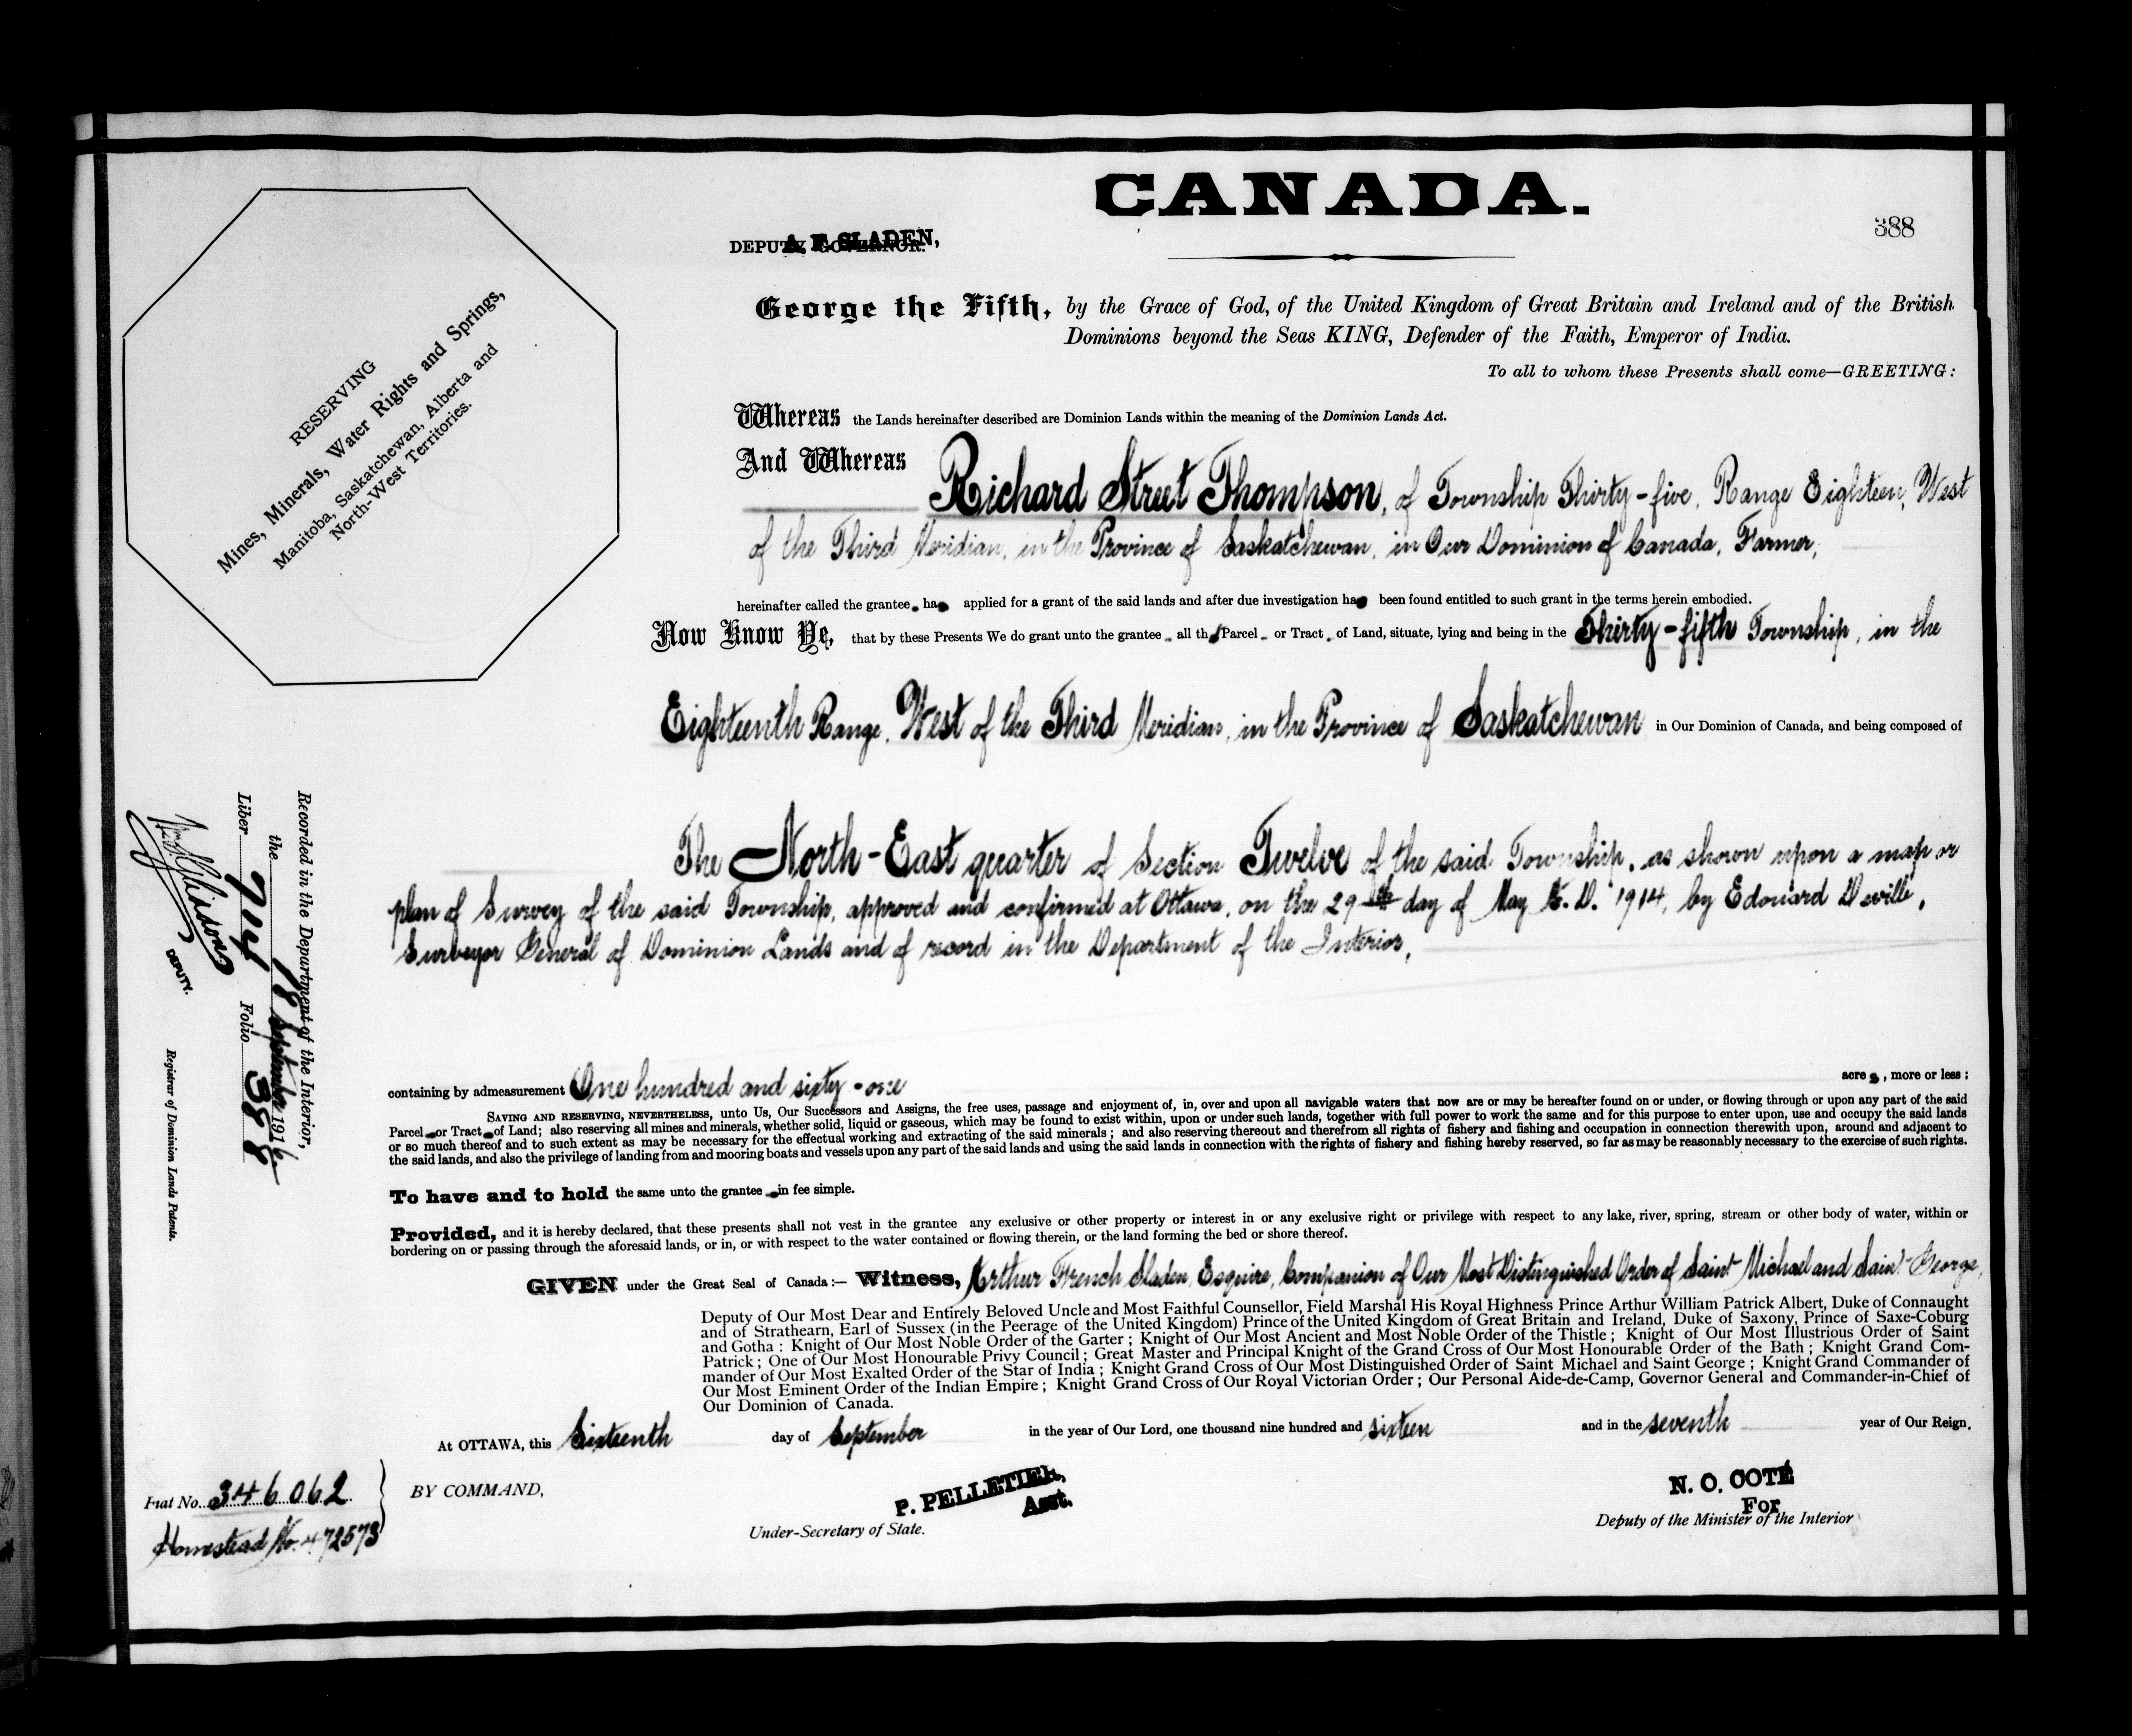 CANADA.
388
A. F. SLADEN,
DEPUTY GOVERNOR.
George the Fifth, by the Grace of God, of the United Kingdom of Great Britain and Ireland and of the British
Dominions beyond the Seas KING, Defender of the Faith, Emperor of India.
To all to whom these Presents shall come—GREETING:
RESERVING
Mines, Minerals, Water Rights and Springs,
Manitoba, Saskatchewan, Alberta and
North-West Territories.
Whereas the Lands hereinafter described are Dominion Lands within the meaning of the Dominion Lands Act.
And Whereas Richard Street Thompson, of Township Thirty-five, Range Eighteen, West
of the Third Meridian, in the Province of Saskatchewan, in Our Dominion of Canada, Farmer,
hereinafter called the grantee, has applied for a grant of the said lands and after due investigation has been found entitled to such grant in the terms herein embodied.
Now Know Ye, that by these Presents We do grant unto the grantee all th Parcel or Tract of Land, situate, lying and being in the Thirty-fifth Township, in the
Eighteenth Range, West of the Third Meridian, in the Province of Saskatchewan in Our Dominion of Canada, and being composed of
The North-East quarter of Section Twelve of the said Township, as shown upon a map or
plan of Survey of the said Township, approved and confirmed at Ottawa, on the 29th day of May A. D. 1914, by Edouard Deville,
Surveyor General of Dominion Lands and of record in the Department of the Interior,
containing by admeasurement One hundred and sixty-one acres, more or less;
SAVING AND RESERVING, NEVERTHELESS, unto Us, Our Successors and Assigns, the free uses, passage and enjoyment of, in, over and upon all navigable waters that now are or may be hereafter found on or under, or flowing through or upon any part of the said
Parcel or Tract of Land; also reserving all mines and minerals, whether solid, liquid or gaseous, which may be found to exist within, upon or under such lands, together with full power to work the same and for this purpose to enter upon, use and occupy the said lands
or so much thereof and to such extent as may be necessary for the effectual working and extracting of the said minerals; and also reserving thereout and therefrom all rights of fishery and fishing and occupation in connection therewith upon, around and adjacent to
the said lands, and also the privilege of landing from and mooring boats and vessels upon any part of the said lands and using the said lands in connection with the rights of fishery and fishing hereby reserved, so far as may be reasonably necessary to the exercise of such rights.
To have and to hold the same unto the grantee in fee simple.
Provided, and it is hereby declared, that these presents shall not vest in the grantee any exclusive or other property or interest in or any exclusive right or privilege with respect to any lake, river, spring, stream or other body of water, within or
bordering on or passing through the aforesaid lands, or in, or with respect to the water contained or flowing therein, or the land forming the bed or shore thereof.
GIVEN under the Great Seal of Canada:— Witness, Arthur French Sladen, Esquire, Companion of Our Most Distinguished Order of Saint Michael and Saint George,
Deputy of Our Most Dear and Entirely Beloved Uncle and Most Faithful Counsellor, Field Marshal His Royal Highness Prince Arthur William Patrick Albert, Duke of Connaught
and of Strathearn, Earl of Sussex (in the Peerage of the United Kingdom) Prince of the United Kingdom of Great Britain and Ireland, Duke of Saxony, Prince of Saxe-Coburg
and Gotha: Knight of Our Most Noble Order of the Garter; Knight of Our Most Ancient and Most Noble Order of the Thistle; Knight of Our Most Illustrious Order of Saint
Patrick; One of Our Most Honourable Privy Council; Great Master and Principal Knight of the Grand Cross of Our Most Honourable Order of the Bath; Knight Grand Com-
mander of Our Most Exalted Order of the Star of India; Knight Grand Cross of Our Most Distinguished Order of Saint Michael and Saint George; Knight Grand Commander of
Our Most Eminent Order of the Indian Empire; Knight Grand Cross of Our Royal Victorian Order; Our Personal Aide-de-Camp, Governor General and Commander-in-Chief of
Our Dominion of Canada.
At OTTAWA, this Sixteenth day of September in the year of Our Lord, one thousand nine hundred and sixteen and in the seventh year of Our Reign.
BY COMMAND,
P. PELLETIER,
Asst.
Under-Secretary of State.
N. O. COTÉ
For
Deputy of the Minister of the Interior
Fiat No. 346062
Homestead No. 472573
Recorded in the Department of the Interior,
the 18 September 1916
Liber 714 Folio 388
DEPUTY.
Registrar of Dominion Lands Patents.